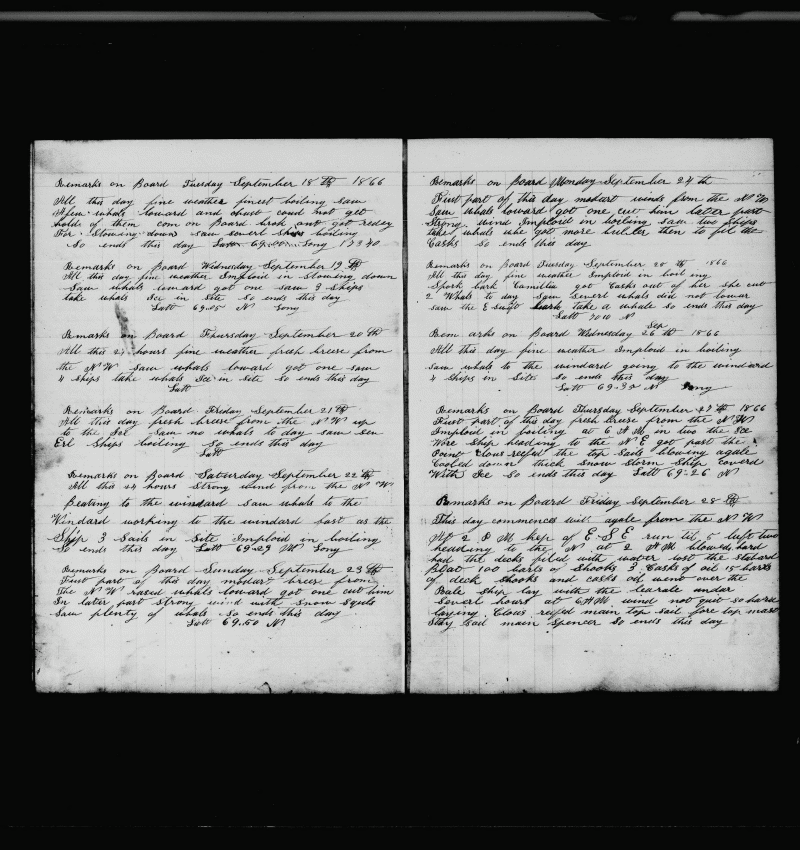 Remarks on Board Tuesday September 18 th 1866
All this day fine weather finest boiling saw
A few whals loward and chast coud not get
holde of them com on Board brok out got redey
For Stowing down saw severl ships boiling
So ends this day Latt 69.00 Long 173 40
Remarks on Board Wednesday September 19 th
All this day fine weather Imploid in Stowing down
Saw whals loward got one saw 3 ships
take whals Ice in Site So ends this day
Latt 69.25 N Long
Remarks on Board Thursday September 20 th
All this 24 hours fine weather fresh breese from
the N W saw whals loward got one saw
4 ships take whals Ice in Site So ends this day
Latt
Remarks on Board Friday September 21 th
All this day fresh breese from the N W up
to the Ice Saw no whals to day saw Sev
Erl Ships boiling So ends this day
Latt
Remarks on Board Saturday September 22 th
All this 24 hours Strong wind from the N W
Beating to the windard Saw whals to the
Windard working to the windard fast as the
Ship 3 Sails in Site Imploid in boiling
So ends this day Latt 69-29 N Long
Remarks on Board Sunday September 23 th
First part of this day modert breese from
The N W rased whals loward got one cut him
In later part Strong wind with Snow Squls
Saw plenty of whals So ends this day
Latt 69.50 N
Remarks on Board Monday September 24 th
First part of this day modert winds from the N W
Saw whals loward got one cut him later part
Strong wind Imploid in boiling saw two Ships
take whals we got more bluber then to fil the
Casks So ends this day
Remarks on Board Tuesday September 25 th 1866
All this day fine weather Imploid in boiling
Spock bark Camillia got Casks out of her she cut
2 Whals to day Saw Severl whals did not lowar
saw the E Swift take a whale So ends this day
Latt 70 10 N
Sep
Rem arks on Board Wednesday 26 th 1866
All this day fine weather Imploid in boiling
saw whals to the windard going to the windward
4 ships in Site So ends this day
Latt 69.35 N Long
Remarks on Board Thursday September 27 th 1866
First part of this day fresh breese from the N W
Imploid in boiling at 6 A M in two the Ice
Wore Ship heading to the N E got past the
Point Clous reefd the top Sails blowing agale
Cooled down thick Snow Storm Ship coverd
With Ice So ends this day Latt 69-26 N
Remarks on Board Friday September 28 th
This day commences with agale from the N W
At 2 P M kep of E S E run til 5 luft two
heading to the N at 2 A M blowed hard
had the decks fild with water lost the stabard
Boat 100 barls of Shooks 3 Casks of oil 15 barls
of deck Shooks and casks oil went over the
Rale Ship lay with the learale undar
Severl hours at 6 A M wind not quit so hard
laying Clous reefd main top sail fore top mast
Stay Sail main Spencer So ends this day